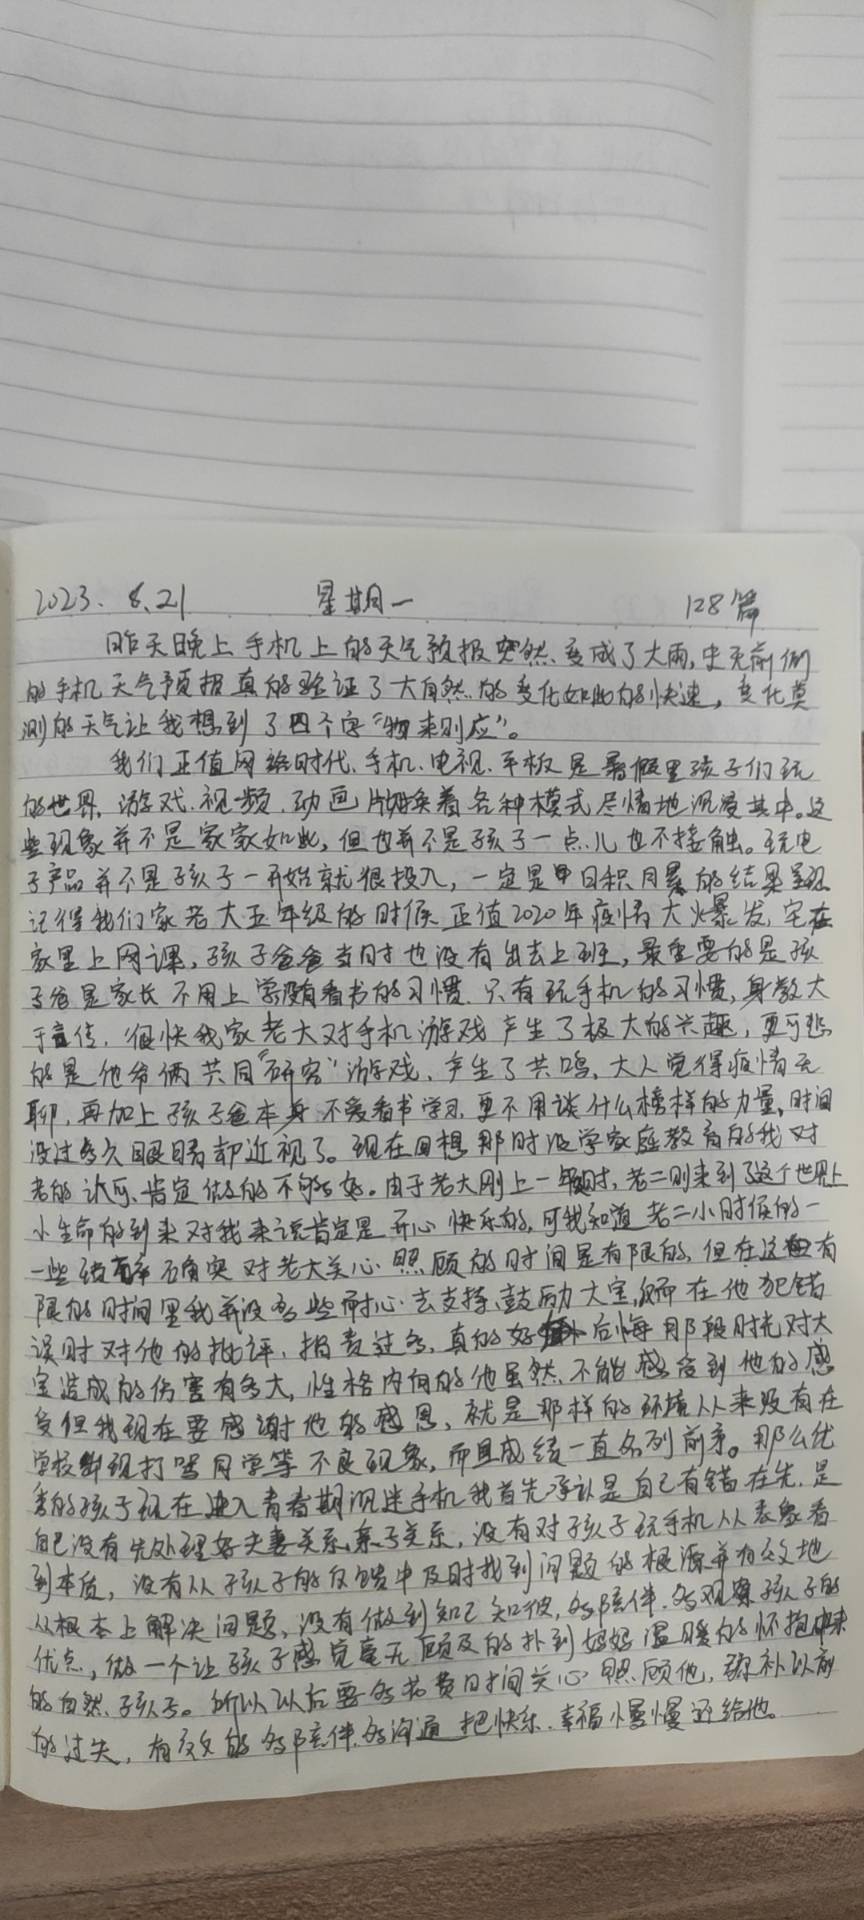 2023. 8.21 星期一 128篇
昨天晚上手机上的天气预报突然、变成了大雨,史无前例
的手机天气预报真的验证了大自然的变化如此的快速,变化莫
测的天气让我想到了四个字“物来则应”。
我们正值网络时代、手机、电视、平板是暑假里孩子们玩
的世界,游戏、视频、动画片变换着各种模式尽情地沉浸其中。这
些现象并不是家家如此,但也并不是孩子一点儿也不接触。玩电
子产品并不是孩子一开始就很投入,一定是日积月累的结果呈现
记得我们家老大五年级的时候正值2020年疫情大爆发,宅在
家里上网课,孩子爸爸当时也没有出去上班,最重要的是孩
子爸是家长不用上学没有看书的习惯、只有玩手机的习惯,身教大
于言传,很快我家老大对手机游戏产生了极大的兴趣,更可悲
的是他爷俩共同“研究”游戏、产生了共鸣,大人觉得疫情无
聊,再加上孩子爸本身不爱看书学习,更不用谈什么榜样的力量,时间
没过多久眼睛却近视了。现在回想那时没学家庭教育的我对
老的认可、肯定做的不够好。由于老大刚上一年级时,老二则来到了这个世界上
小生命的到来对我来说肯定是开心快乐的,可我知道老二小时候的一
一些确实对老大关心照顾的时间是有限的,但在这有
限的时间里我并没多些耐心去支持、鼓励大宝,而在他犯错
误时对他的批评、指责过多,真的好后悔那段时光对大
宝造成的伤害有多大,性格内向的他虽然不能感受到他的感
受但我现在要感谢他的感恩,就是那样的环境从来没有在
学校出现打骂同学等不良现象,而且成绩一直名列前茅。那么优
秀的孩子现在进入青春期沉迷手机我首先承认是自己有错在先,是
自己没有先处理好夫妻关系、亲子关系,没有对孩子玩手机从表象看
到本质,没有从孩子的反馈中及时找到问题的根源并有效地
从根本上解决问题,没有做到知己知彼,多陪伴、多观察孩子的
优点,做一个让孩子感觉毫无顾及的扑到妈妈温暖的怀抱中来
的自然孩子。所以以后要多花费时间关心照顾他,弥补以前
的过失,有效的多陪伴、多沟通把快乐、幸福慢慢还给他。